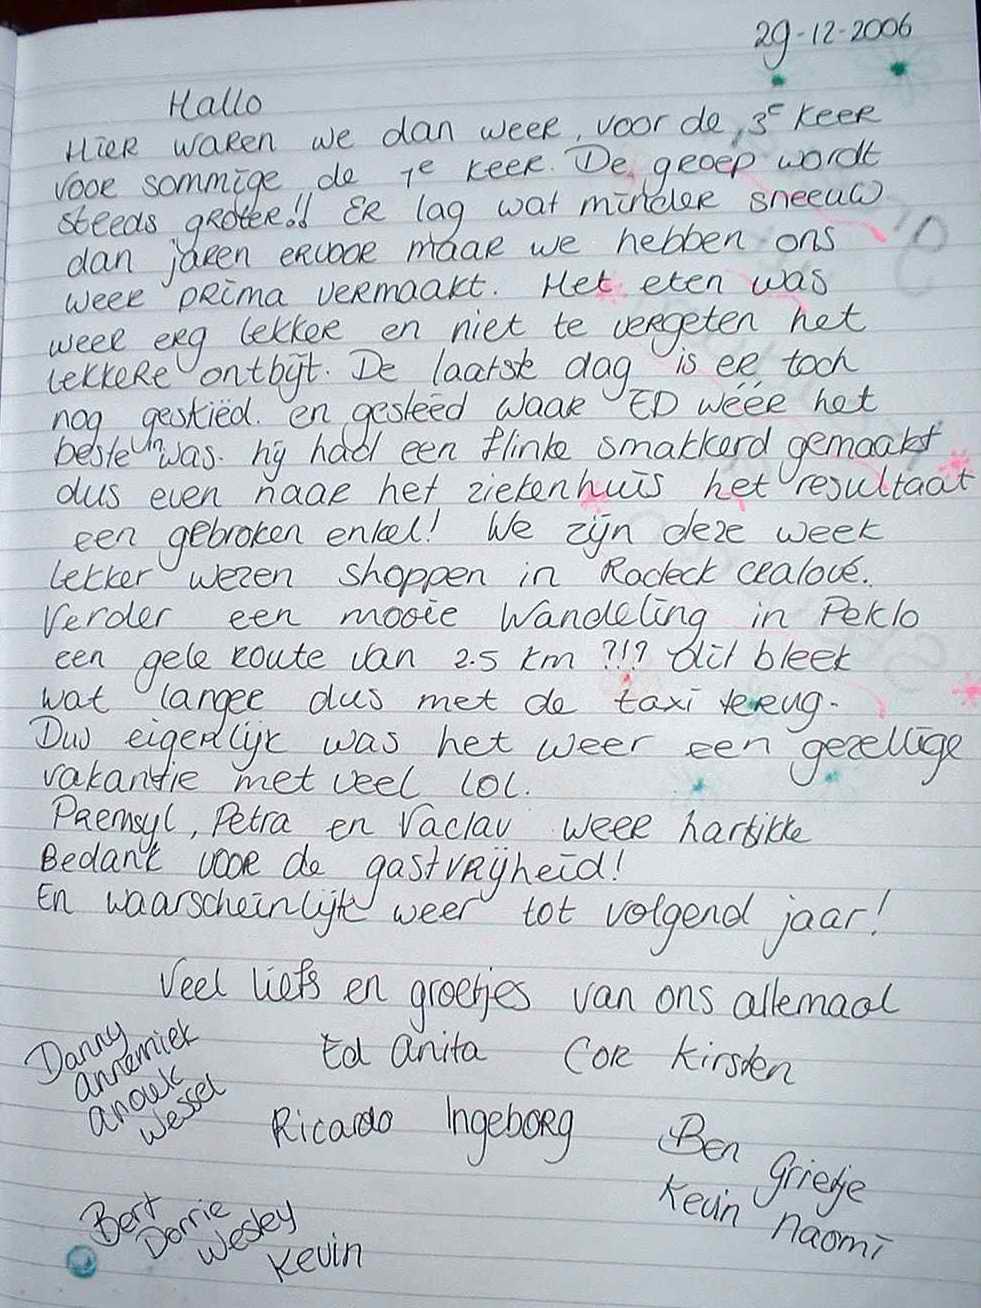 29-12-2006
Hallo
Hier waren we dan weer, voor de 3e keer
voor sommige de 1e keer. De groep wordt
steeds groter!! Er lag wat minder sneeuw
dan jaren ervoor maar we hebben ons
weer prima vermaakt. Het eten was
weer erg lekker en niet te vergeten het
lekkere ontbijt. De laatste dag is er toch
nog geskiëd. en gesleëd waar ED wéér het
beste in was. hij had een flinke smakkerd gemaakt
dus even naar het ziekenhuis het resultaat
een gebroken enkel! We zijn deze week
lekker wezen shoppen in Radeck cralové.
Verder een mooie wandeling in Peklo
een gele route van 2.5 km ?!? dit bleek
wat langer dus met de taxi terug.
Dus eigenlijk was het weer een gezellige
vakantie met veel lol.
Premsyl, Petra en Vaclav weer hartelijke
Bedankt voor de gastvrijheid!
En waarscheinlijk weer tot volgend jaar!
Veel liefs en groetjes van ons allemaal
Danny
Annemiek
Anouk
Wessel
Ed Anita Cor Kirsten
Ricardo Ingeborg
Ben Grietje
Kevin Naomi
Bert
Dorrie
Wesley
Kevin